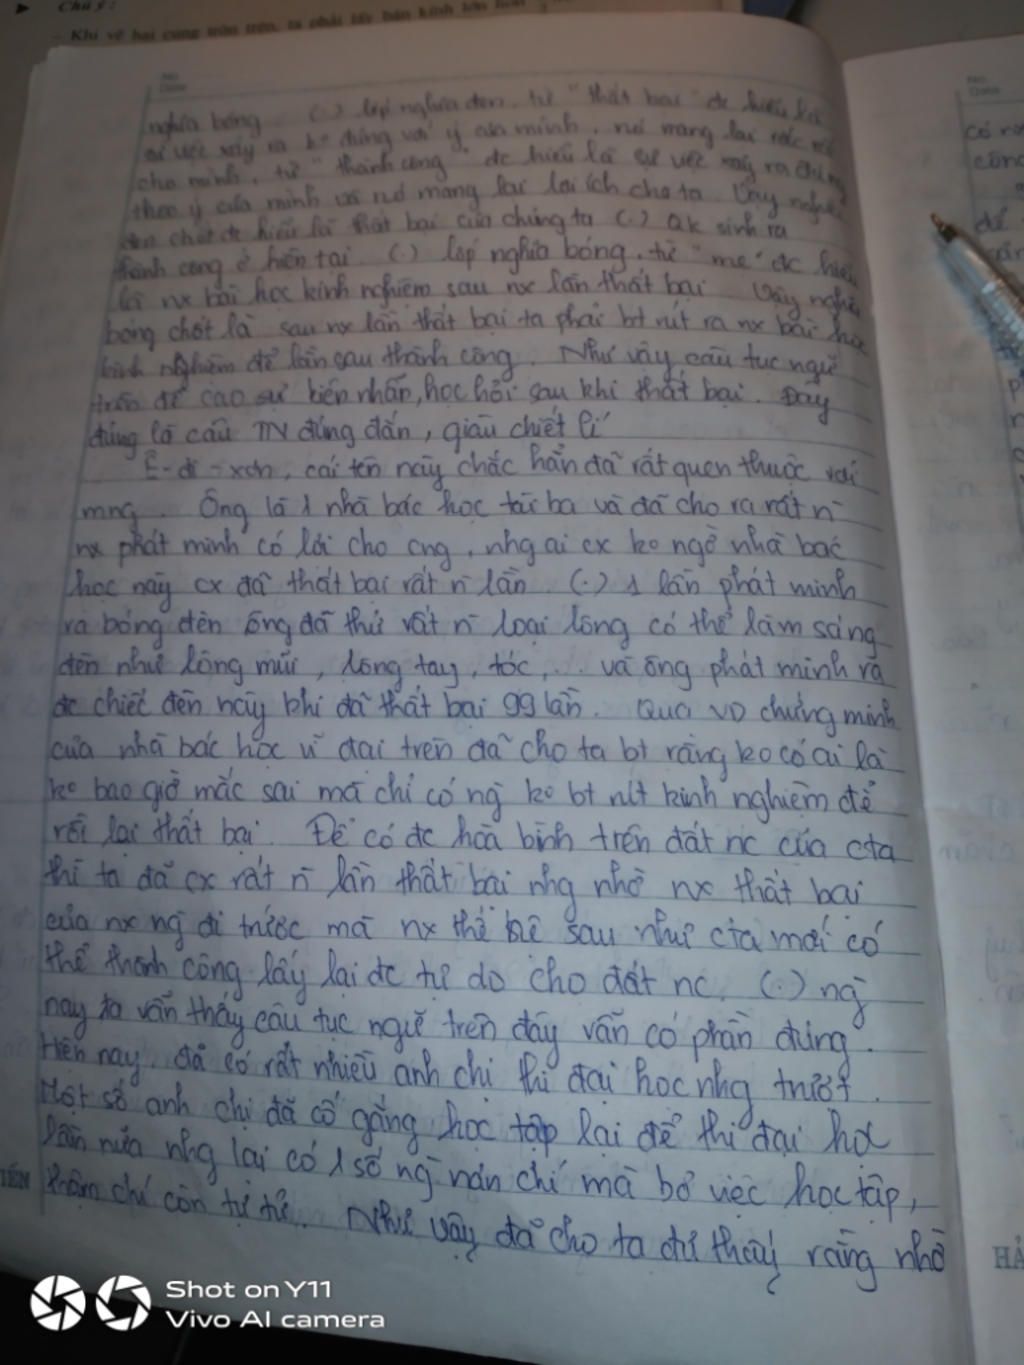 Chú ý:
- Khi vẽ hai cung tròn trên, ta phải lấy bán kính lớn hơn
No.
Date
nghĩa bóng. (.) lớp nghĩa đen, từ "thất bại" đc hiểu là
sự việc xảy ra ko đúng với ý của mình, nó mang lại
cho mình, từ "thành công" đc hiểu là sự việc xảy ra đúng
theo ý của mình và nó mang lại lợi ích cho ta. Vậy nghĩa
đen chốt đc hiểu là thất bại của chúng ta (.) qk sinh ra
thành công ở hiện tại. (.) lớp nghĩa bóng, từ "mẹ" đc hiểu
là nx bài học kinh nghiệm sau nx lần thất bại. Vậy nghĩa
bóng chốt là sau nx lần thất bại ta phải bt rút ra nx bài học
kinh nghiệm để lần sau thành công. Như vậy câu tục ngữ
trên đề cao sự kiên nhẫn, học hỏi sau khi thất bại. Đây
đúng là câu TN đúng đắn, giàu chiết lí
Ê-đi-xơn, cái tên này chắc hẳn đã rất quen thuộc với
mng. Ông là 1 nhà bác học tài ba và đã cho ra rất n̄
nx phát minh có lời cho cng, nhg ai cx ko ngờ nhà bác
học này cx đã thất bại rất n̄ lần. (.) 1 lần phát minh
ra bóng đèn ông đã thử rất n̄ loại lông có thể làm sáng
đèn như lông mũi, lông tay, tóc,... và ông phát minh ra
đc chiếc đèn này khi đã thất bại 99 lần. Qua VD chứng minh
của nhà bác học vĩ đại trên đã cho ta bt rằng ko có ai là
ko bao giờ mắc sai mà chỉ có ng̀ ko bt rút kinh nghiệm để
rồi lại thất bại. Để có đc hoà bình trên đất nc của cta
thì ta đã cx rất n̄ lần thất bại nhg nhờ nx thất bại
của nx ng̀ đi trước mà nx thế hệ sau như cta mới có
thể thành công lấy lại đc tự do cho đất nc. (.) ng̀
nay ta vẫn thấy câu tục ngữ trên đây vẫn có phần đúng.
Hiện nay, đã có rất nhiều anh chị thi đại học nhg trượt.
Một số anh chị đã cố gắng học tập lại để thi đại học
lần nữa nhg lại có 1 số ng̀ nản chí mà bỏ việc học tập,
thậm chí còn tự tử. Như vậy đã cho ta thấy rằng nhờ
No.
Date
có
công
để
HẢ
Shot on Y11
Vivo AI camera